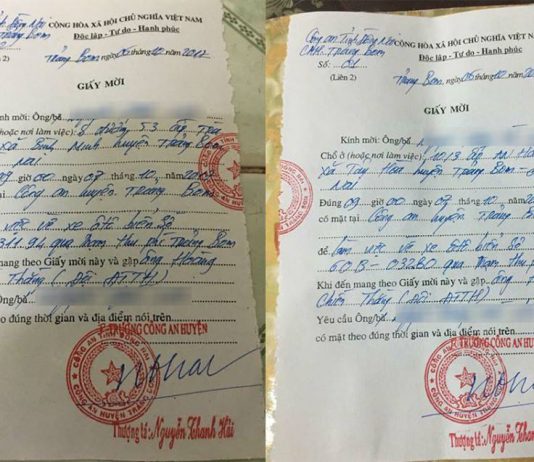 CỘNG HÒA XÃ HỘI CHỦ NGHĨA VIỆT NAM
Độc lập - Tự do - Hạnh phúc
(Liên 2)
Trảng Bom, ngày 06 tháng 10 năm 2017
GIẤY MỜI
Kính mời: Ông/bà
(hoặc nơi làm việc):
xã Bình Minh huyện Trảng Bom
giờ 00 ngày 07 tháng 10 năm
tại Công an huyện Trảng Bom
việc về xe ôtô biển số
qua trạm thu phí Trảng Bom
mang theo Giấy mời này và gặp ông Hoàng
Thắng (Đội
Ông/bà
theo đúng thời gian và địa điểm nói trên
TRƯỞNG CÔNG AN HUYỆN
CÔNG AN HUYỆN TRẢNG BOM
Thượng tá: Nguyễn Thanh Hải
Công an Tỉnh Đồng Nai
CAH. Trảng Bom
Số: 01
(Liên 2)
CỘNG HÒA XÃ HỘI CHỦ NGHĨA VIỆT
Độc lập - Tự do - Hạnh phúc
Trảng Bom, ngày 06 tháng 10 năm
GIẤY MỜI
Kính mời: Ông/bà
Chỗ ở (hoặc nơi làm việc):
xã Tây Hòa huyện Trảng Bom
Nai
Đúng 09 giờ 00 ngày 07 tháng 10, năm
có mặt tại Công an huyện Trảng
để làm việc về xe ôtô biển số
60B-03280 qua trạm thu
Khi đến mang theo Giấy mời này và gặp ông
Chiến Thắng (Đội
Yêu cầu Ông/bà
có mặt theo đúng thời gian và địa điểm nói trên
TRƯỞNG CÔNG AN HUYỆN
CÔNG AN HUYỆN TRẢNG
Thượng tá: Nguyễn Thanh